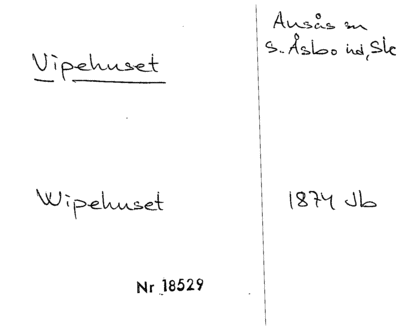 Ausås sn
Vipehuset
S. Åsbo hd, Sk
Wipehuset
1874 Jb
Nr 18529